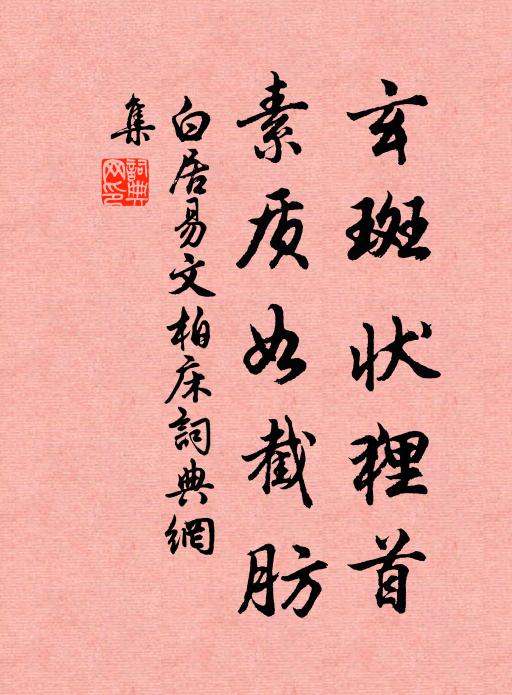 玄斑状狸首
素质如截肪
白居易文柏床詞典網
集
詞典網印